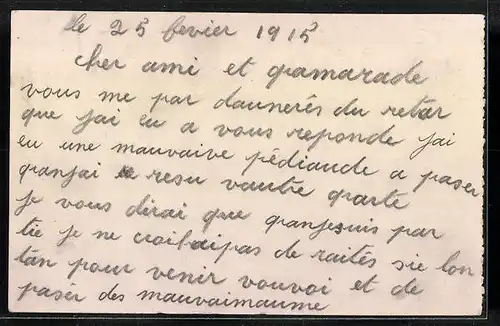 le 25 fevier 1915
cher ami et gamarade
vous me par daunerés du retar
que jai eu a vous reponde jai
eu une mauvaive pédiaude a paser
granjai resu vautre garte
je vous dirai que granjesuis par
tie je ne croibaipas de raités sie lon
tan pour venir vouvoi et de
pasér des mauvaimaume